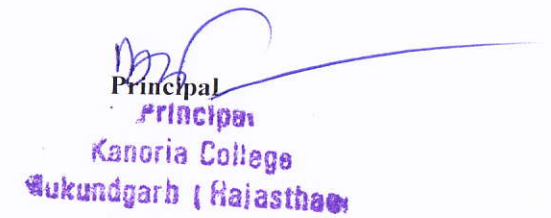 Principal
Principal
Kanoria College
Mukundgarh ( Rajasthan